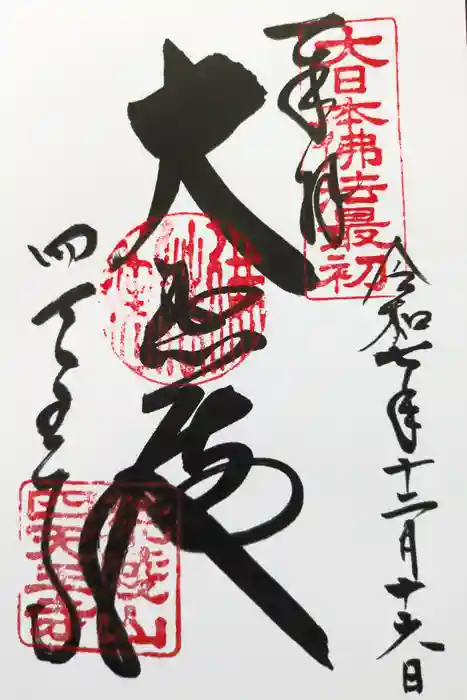 奉拝
大日本佛法最初
令和七年十二月十六日
大悲殿
四天王寺
荒陵山
四天王寺